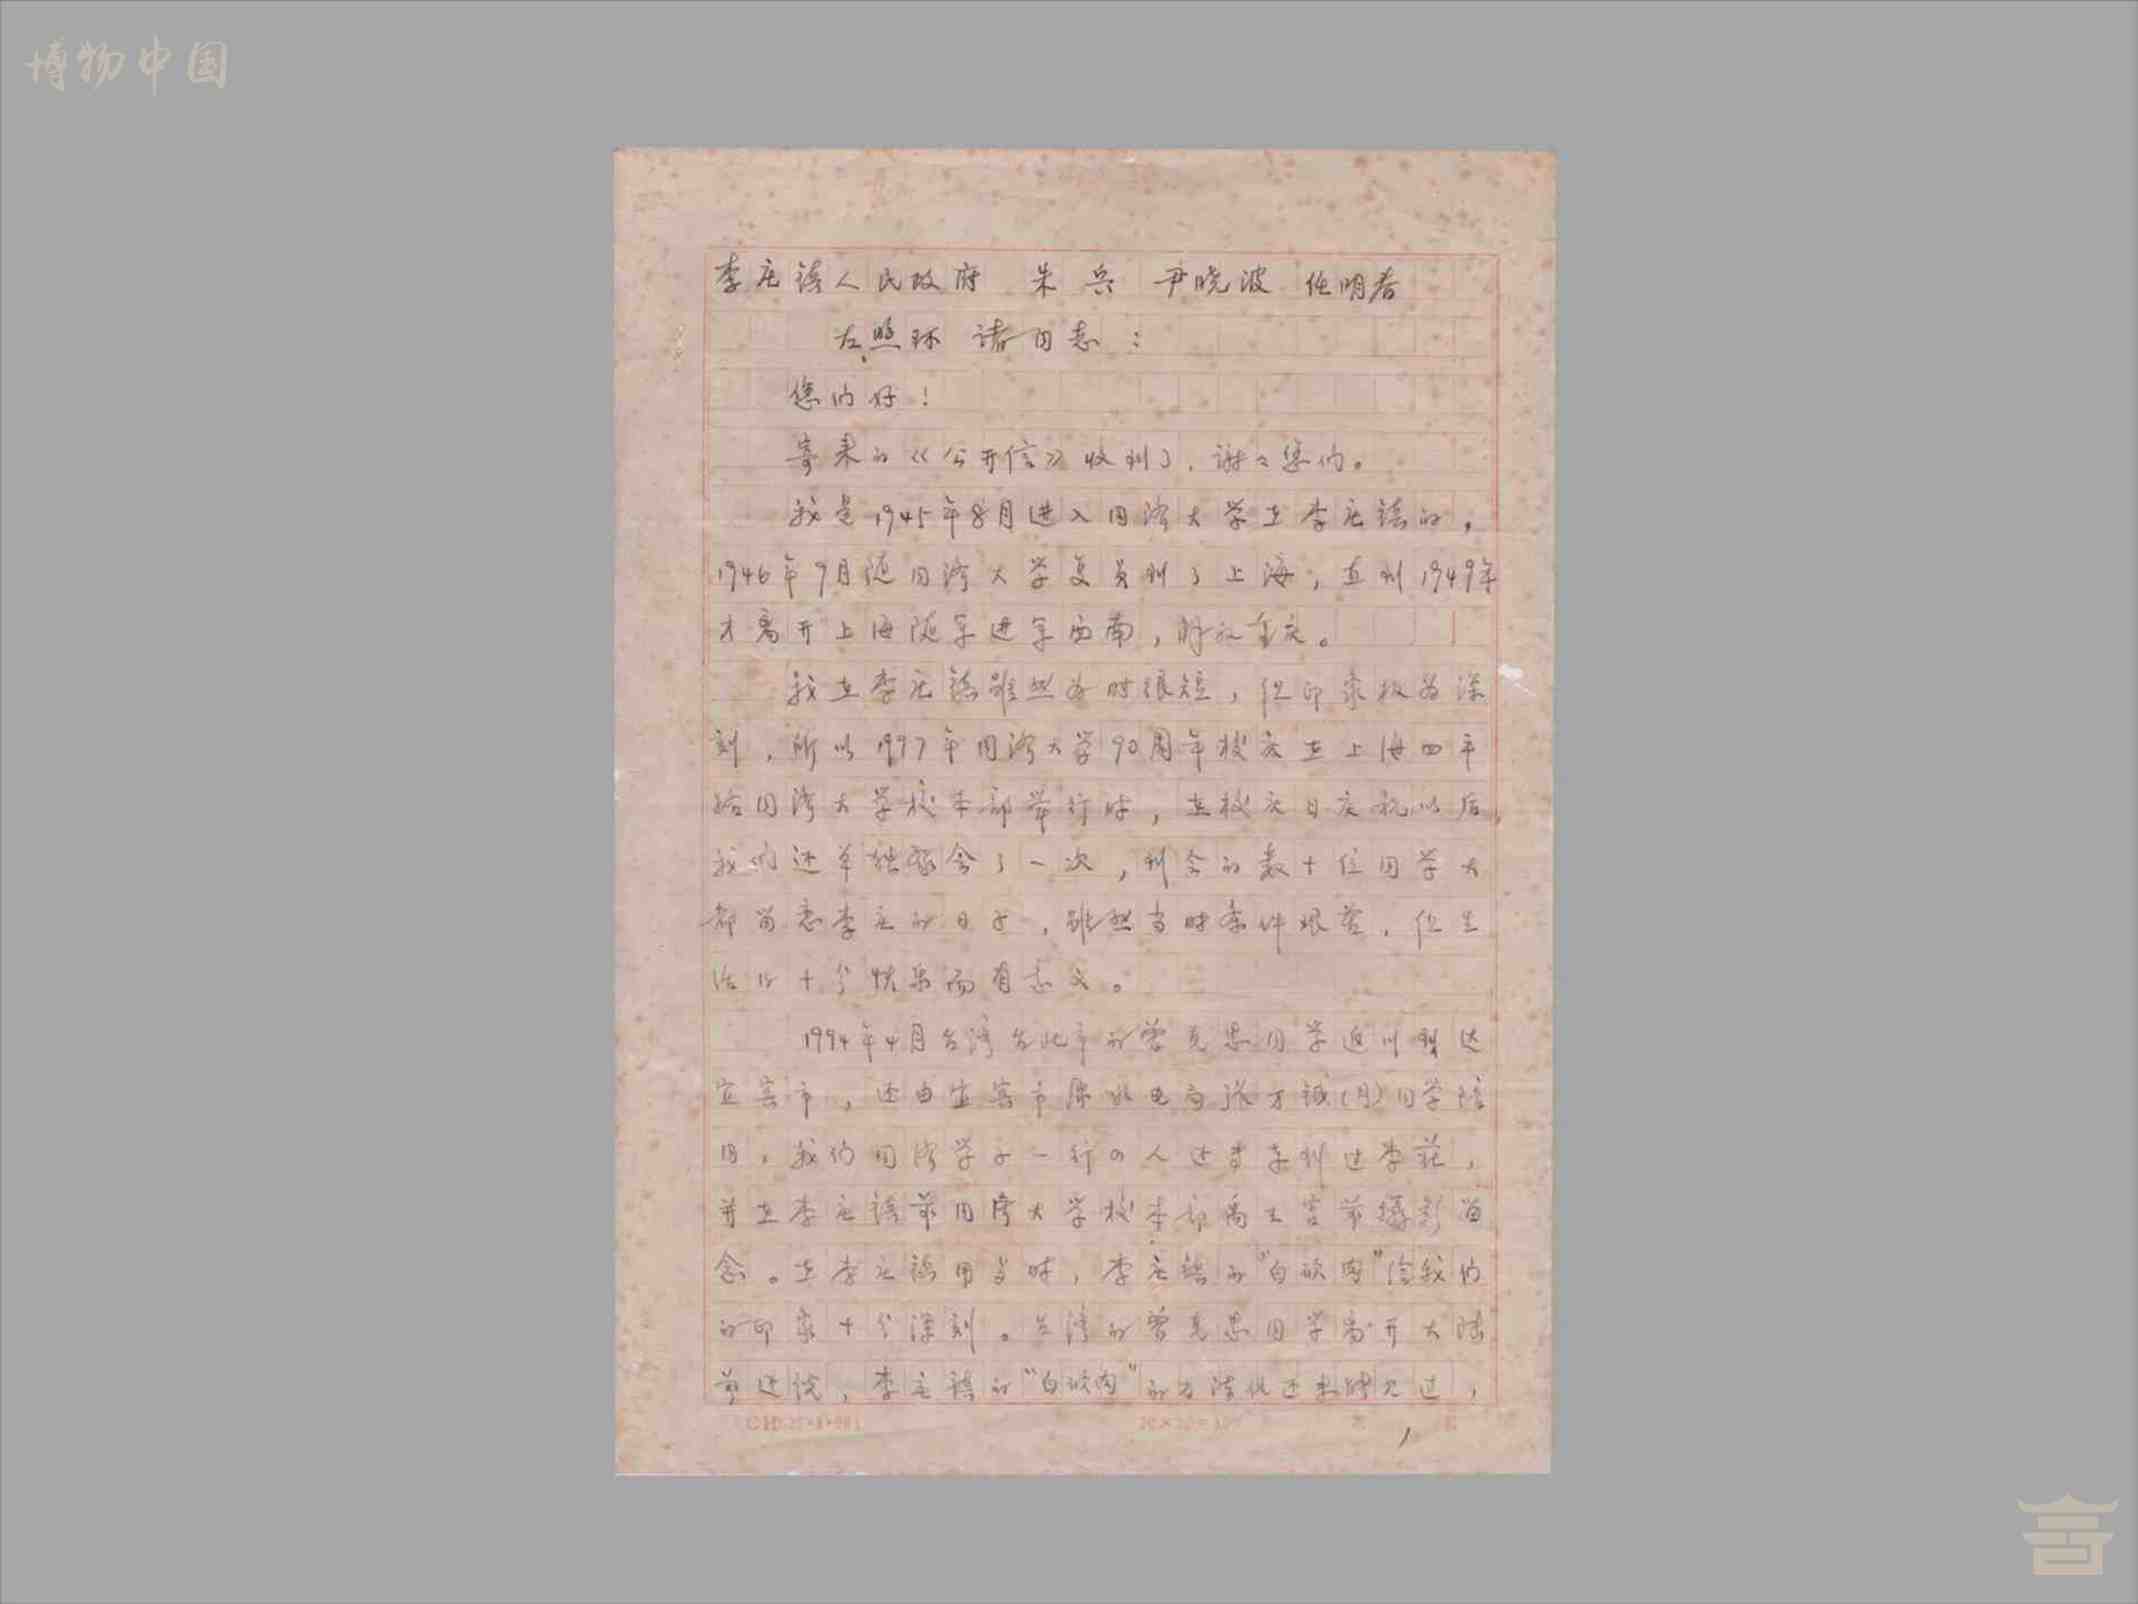 博物中国
李庄镇人民政府 朱兵 尹晓波 任明春
左照环 诸同志：
您们好！
寄来的《公开信》收到了，谢々您们。
我是1945年8月进入同济大学在李庄镇的，
1946年9月随同济大学复员到了上海，直到1949年
才离开上海随军进军西南，解放重庆。
我在李庄镇虽然为时很短，但印象极为深
刻，所以1997年同济大学90周年校庆在上海四平
路同济大学校本部举行时，在校庆日庆祝以后，
我们还单独聚会了一次，到会的数十位同学大
都留恋李庄的日子，虽然当时条件艰苦，但生
活得十分快乐而有意义。
1994年4月台湾台北市的曾克思同学返川到达
宜宾市，还由宜宾市原水电局张万钺(月)同学陪
同，我们同济学子一行四人还专车到达李荘，
并在李庄镇前同济大学校本部禹王宫前摄影留
念。在李庄镇用当时，李庄镇的“白砍肉”给我们
的印象十分深刻。台湾的曾克思同学离开大陆
前还说，李庄镇的“白砍肉”的方法他还未听见过，
20×20=400
1